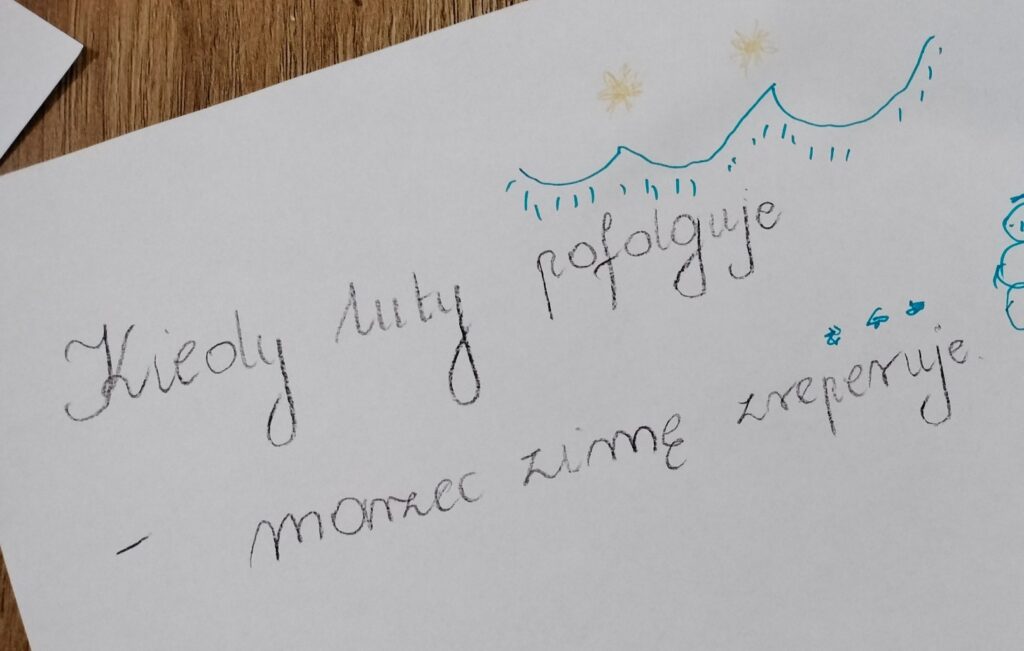 Kiedy luty pofolguje
- marzec zimę zreperuje.